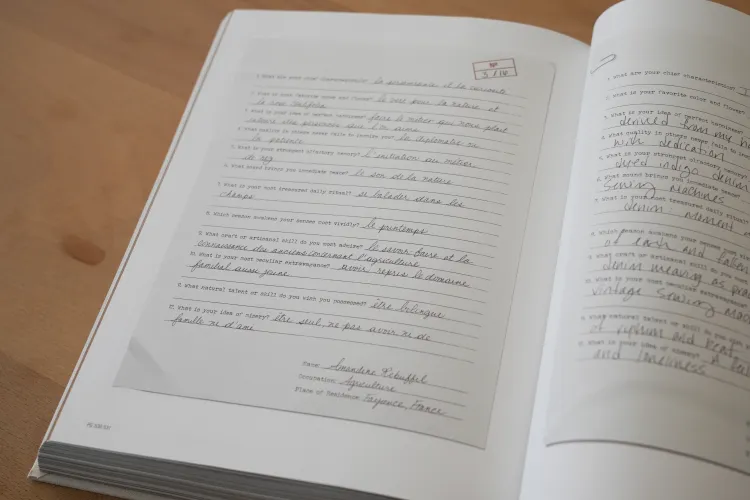 Nº
5/10
1. What are your chief characteristics? la persévérance et la curiosité
2. What is your favorite color and flower? le vert pour la nature et
la rose
3. What is your idea of perfect happiness? faire le métier qui nous plait
que l'on aime
4. What quality in others never fails to inspire you? la diplomatie ou
la patience
5. What is your strongest olfactory memory? l'initiation au métier
de nez
6. What sound brings you immediate peace? le son de la nature
7. What is your most treasured daily ritual? se balader dans les
champs
8. Which season awakens your senses most vividly? le printemps
9. What craft or artisanal skill do you most admire? le savoir faire et la
connaissance des anciens concernant l'agriculture
10. What is your most peculiar extravagance? avoir repris le domaine
familial aussi jeune
11. What natural talent or skill do you wish you possessed? être bilingue
12. What is your idea of misery? être seul, ne pas avoir ni de
famille ni d'amis
Name: Amandine
Occupation: Agriculture
Place of Residence Fayence, France
1. What are your chief characteristics? I
2. What is your favorite color and flower?
3. What is your idea of perfect happiness?
denied from my
4. What quality in others never fails to
with dedication
5. What is your strongest olfactory memory?
deep indigo denim
6. What sound brings you immediate peace?
sewing machines
7. What is your most treasured daily ritual?
denim moment
8. Which season awakens your senses most
of earth and
9. What craft or artisanal skill do you
denim meaning as
10. What is your most peculiar extravagance?
vintage sewing
11. What natural talent or skill do you
of rythm and beat
12. What is your idea of misery? A
and loneliness